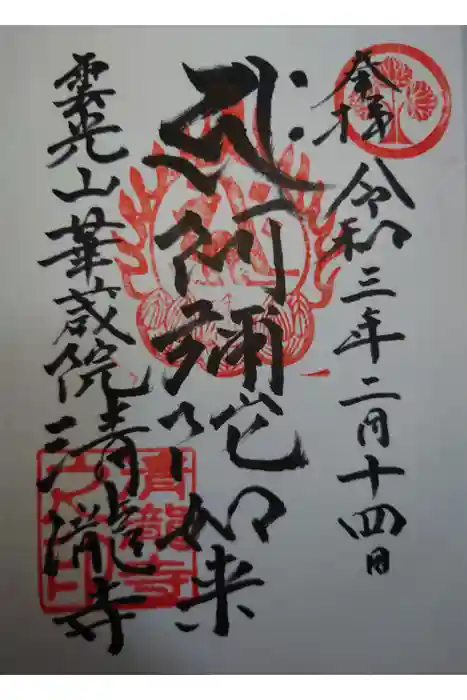 奉拝 令和三年二月十四日
ह्रीः 阿彌陀如来
雲光山華蔵院清瀧寺